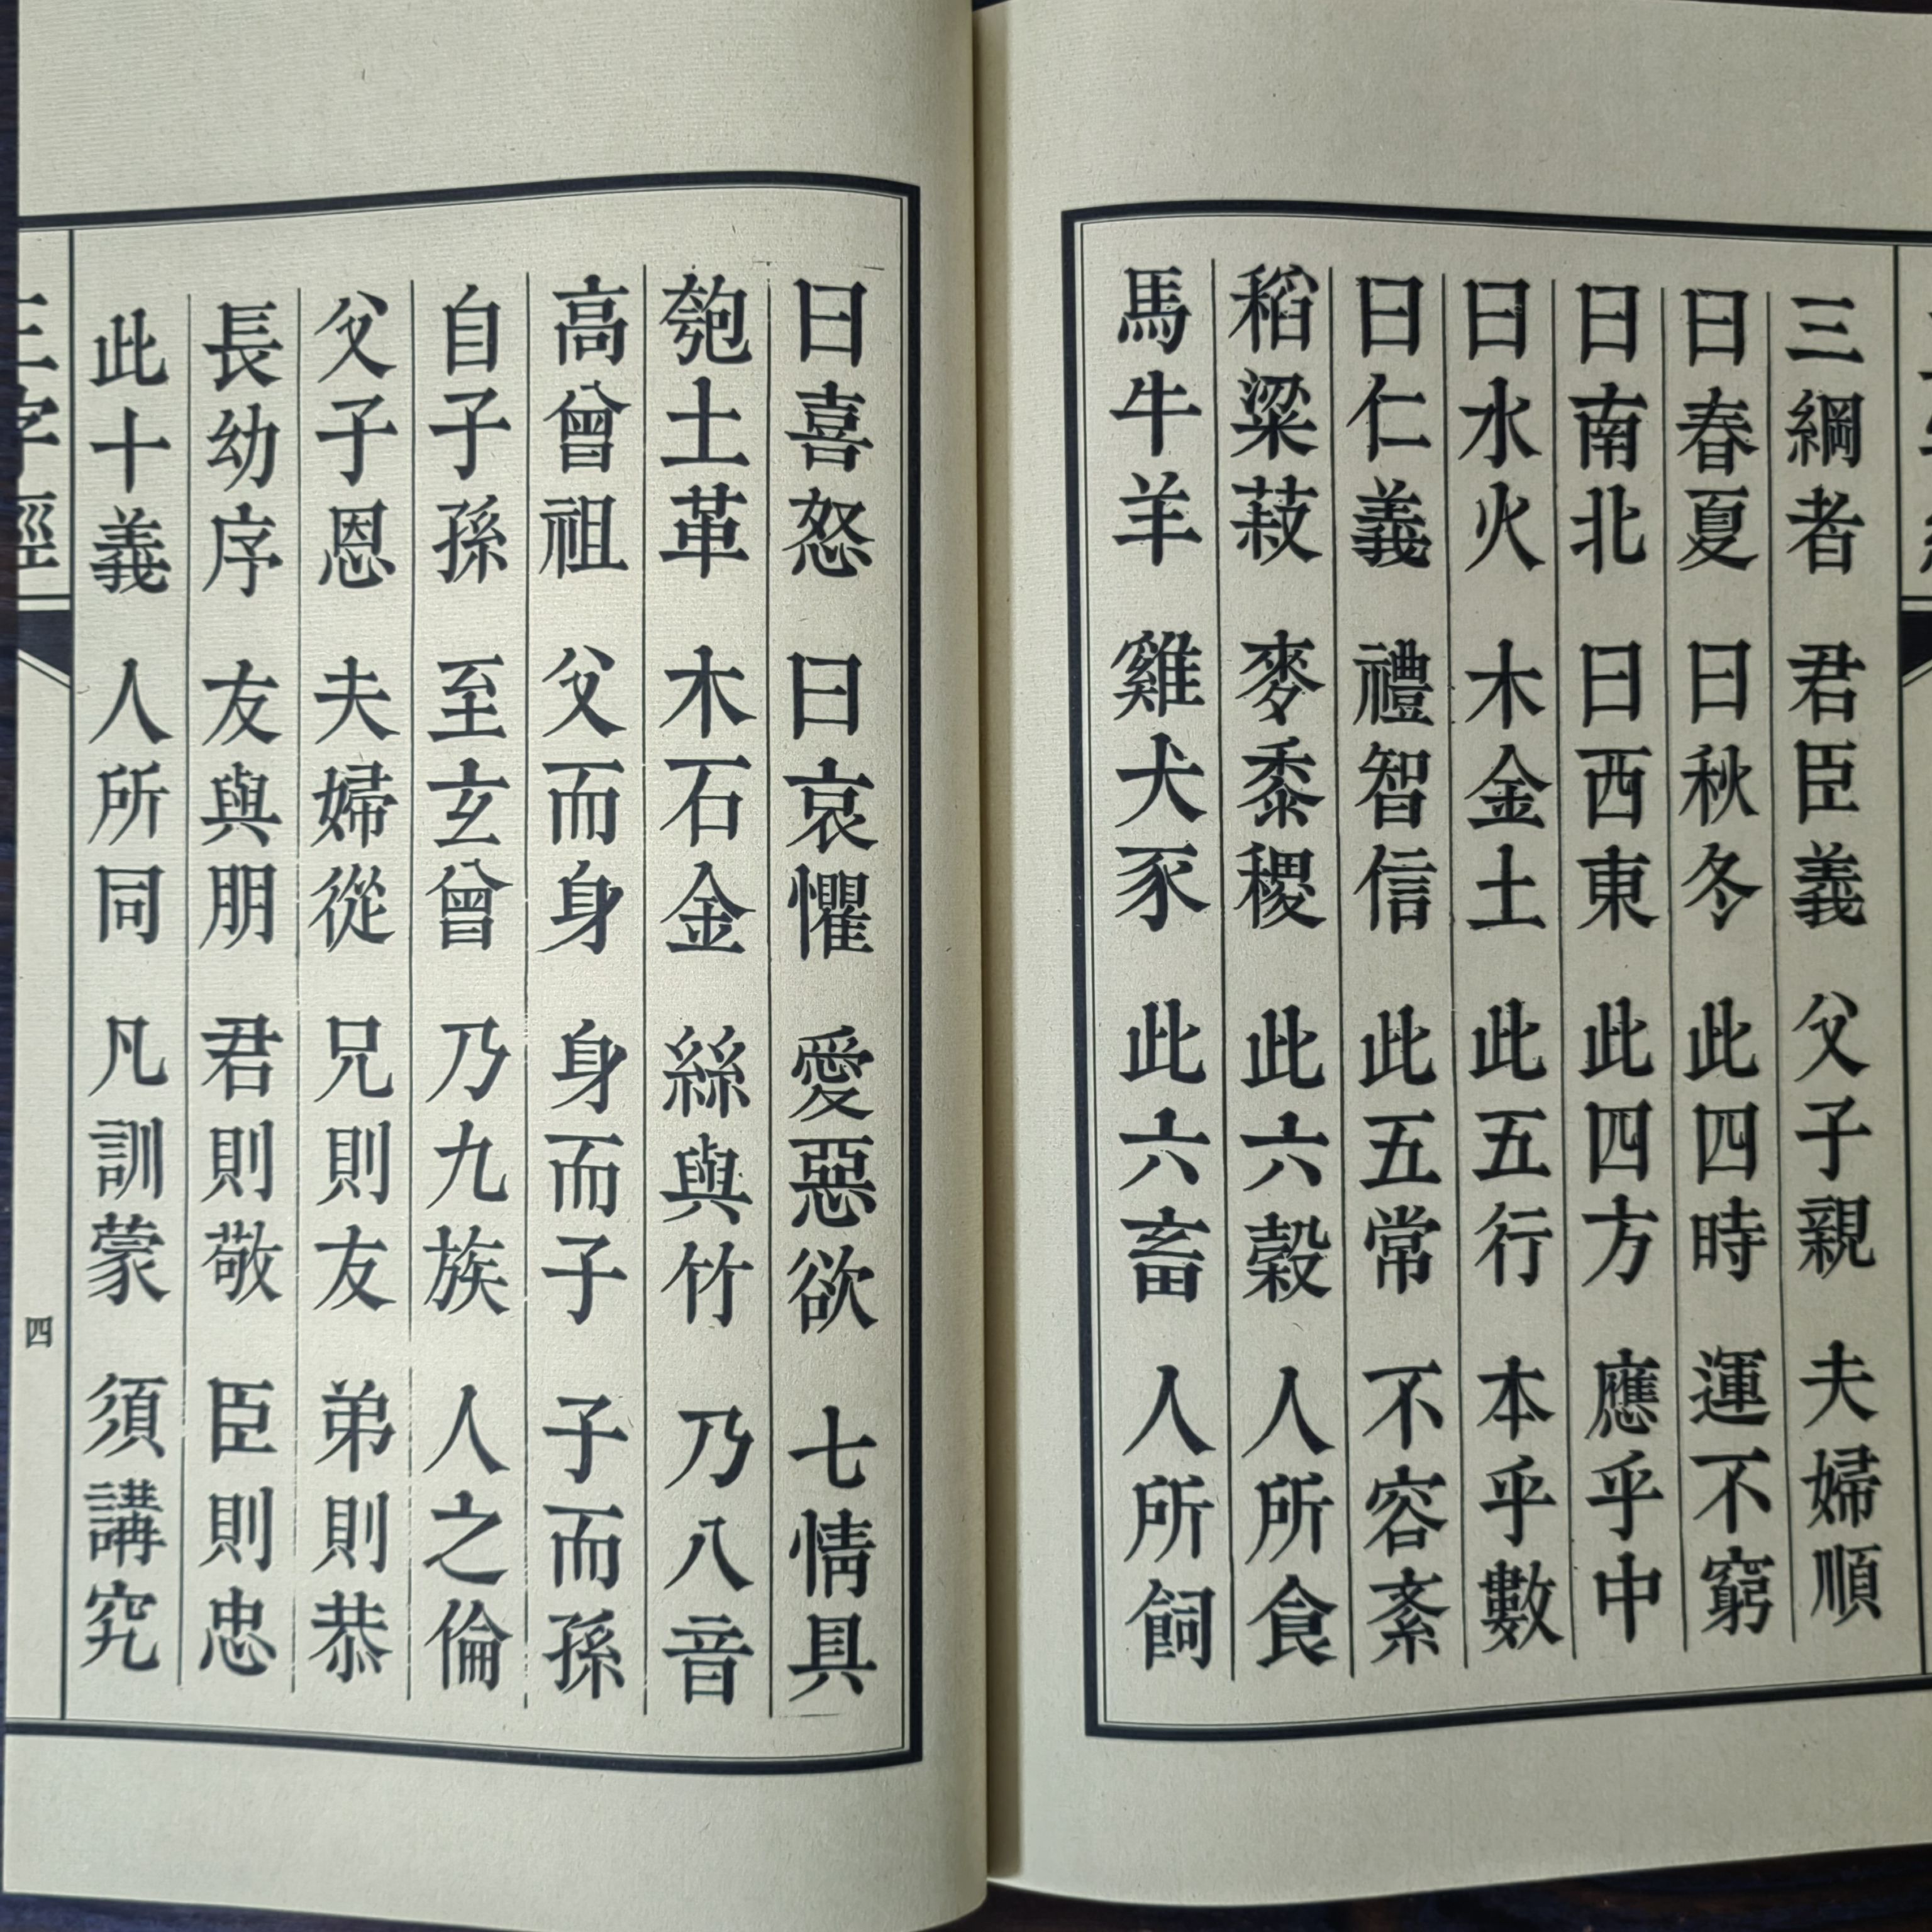 三綱者 君臣義 父子親 夫婦順
曰春夏 曰秋冬 此四時 運不窮
曰南北 曰西東 此四方 應乎中
曰水火 木金土 此五行 本乎數
曰仁義 禮智信 此五常 不容紊
稻粱菽 麥黍稷 此六穀 人所食
馬牛羊 雞犬豕 此六畜 人所飼
曰喜怒 曰哀懼 愛惡欲 七情具
匏土革 木石金 絲與竹 乃八音
高曾祖 父而身 身而子 子而孫
自子孫 至玄曾 乃九族 人之倫
父子恩 夫婦從 兄則友 弟則恭
長幼序 友與朋 君則敬 臣則忠
此十義 人所同 凡訓蒙 須講究
三字經
四